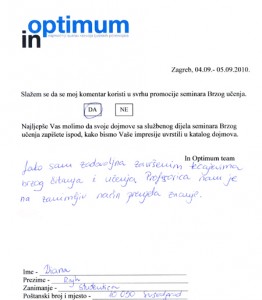 optimum
in
Zagreb, 04.09.- 05.09.2010.
Slažem se da se moj komentar koristi u svrhu promocije seminara Brzog učenja.
DA NE
Najljepše Vas molimo da svoje dojmove sa službenog dijela seminara Brzog
učenja zapišete ispod, kako bismo Vaše impresije uvrstili u katalog dojmova.
In Optimum team
Jako sam zadovoljna završenim tečajevima
brzog čitanja i učenja. Profesorica nam je
na zanimljiv način znanje.
Ime - Diana
Prezime -
Zanimanje - studentica
Poštanski broj i mjesto - 10 090